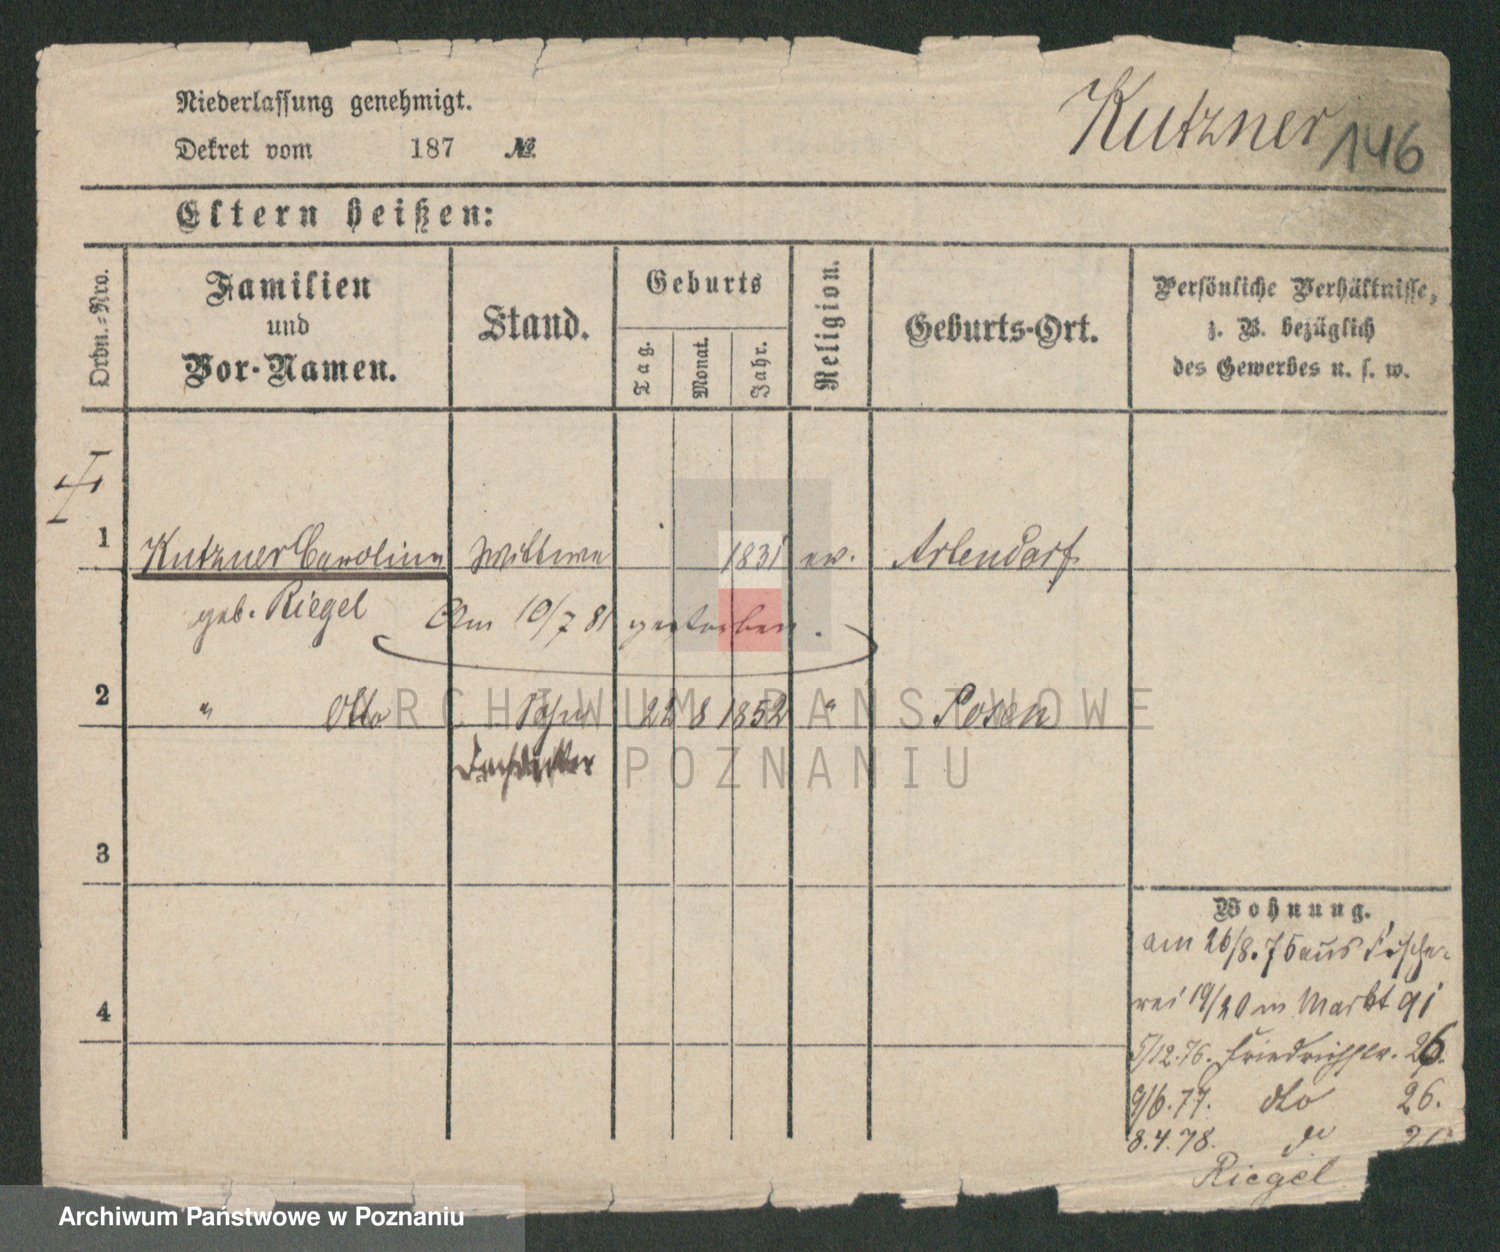 Niederlassung genehmigt.
Kutzner 146
Dekret vom 187 №.
Eltern heißen:
Ordn.-Nro.
Familien
und
Vor-Namen.
Stand.
Geburts
Tag.
Monat.
Jahr.
Religion.
Geburts-Ort.
Persönliche Verhältnisse,
z. B. bezüglich
des Gewerbes u. s. w.
1 Kutzner Caroline Wittwe 1831 ev.
geb. Riegel Am 10/7 81 gestorben.
2 " Otto Sohn 22 8 1852 " Posen
3
4
Wohnung.
am 26/8.76 aus Fische-
rei 19/20 n Markt 91
5/12.76. Friedrichstr. 26.
9/6.77. dto 26.
8.4.78. do
Riegel
ARCHIWUM PAŃSTWOWE
W POZNANIU
Archiwum Państwowe w Poznaniu